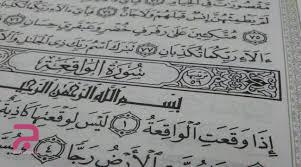 مَّقْصُورَاتٌ فِي
لَمْ يَطْمِثْهُنَّ إِنسٌ قَبْلَهُمْ وَلَا جَانٌّ
مُتَّكِئِينَ عَلَىٰ رَفْرَفٍ خُضْرٍ وَعَبْقَرِيٍّ
ءَالَآءِ رَبِّكُمَا تُكَذِّبَانِ ٧٧ تَبَارَكَ اسْمُ رَبِّكَ ذِي الْجَلَالِ
سُورَةُ الْوَاقِعَةِ
بِسْمِ اللَّهِ الرَّحْمَٰنِ الرَّحِيمِ
إِذَا وَقَعَتِ الْوَاقِعَةُ ١ لَيْسَ لِوَقْعَتِهَا كَاذِبَةٌ
الْأَرْضُ رَجًّا ٤